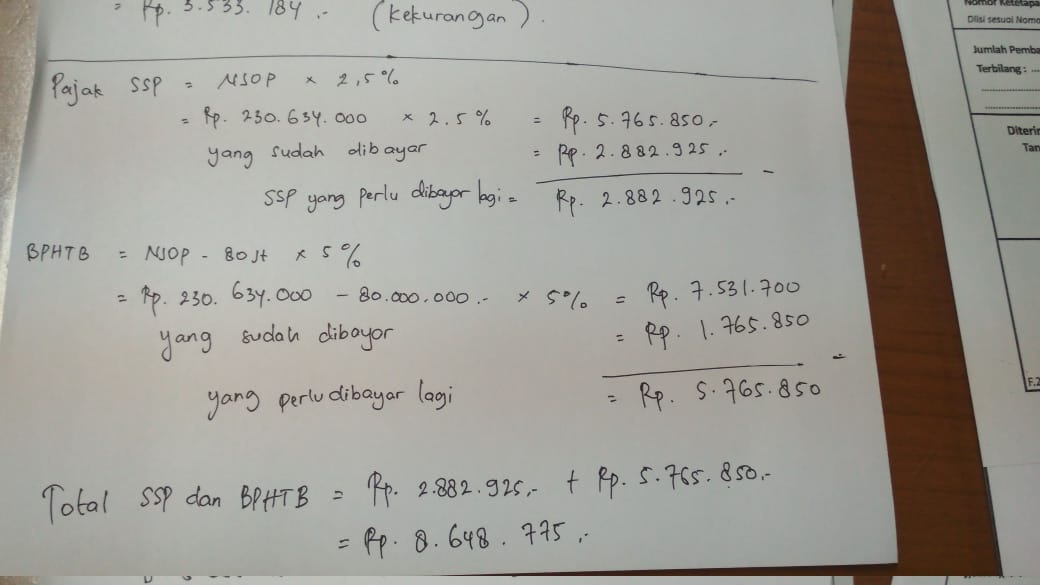 = Rp. 3.533.184,- (kekurangan).
Pajak SSP = NJOP × 2,5%
= Rp. 230.634.000 × 2.5% = Rp. 5.765.850,-
yang sudah dibayar = Rp. 2.882.925,-
SSP yang perlu dibayar lagi = Rp. 2.882.925,-
BPHTB = NJOP - 80 Jt × 5%
= Rp. 230.634.000 - 80.000.000.- × 5% = Rp. 7.531.700
yang sudah dibayar = Rp. 1.765.850
yang perlu dibayar lagi = Rp. 5.765.850
Total SSP dan BPHTB = Rp. 2.882.925,- + Rp. 5.765.850.-
= Rp. 8.648.775,-
Nomor Ketetapa
Diisi sesuai Nomo
Jumlah Pemba
Terbilang : ...
Diterin
Tan
F.2